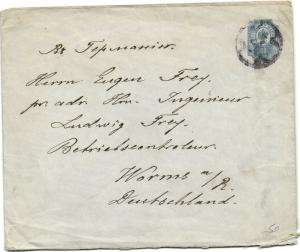 Въ Германію.
Herrn Eugen Frey.
pr. adr. Hrn. Ingenieur
Ludwig Frey.
Betriebscontroleur.
Worms a/R.
Deutschland.
50